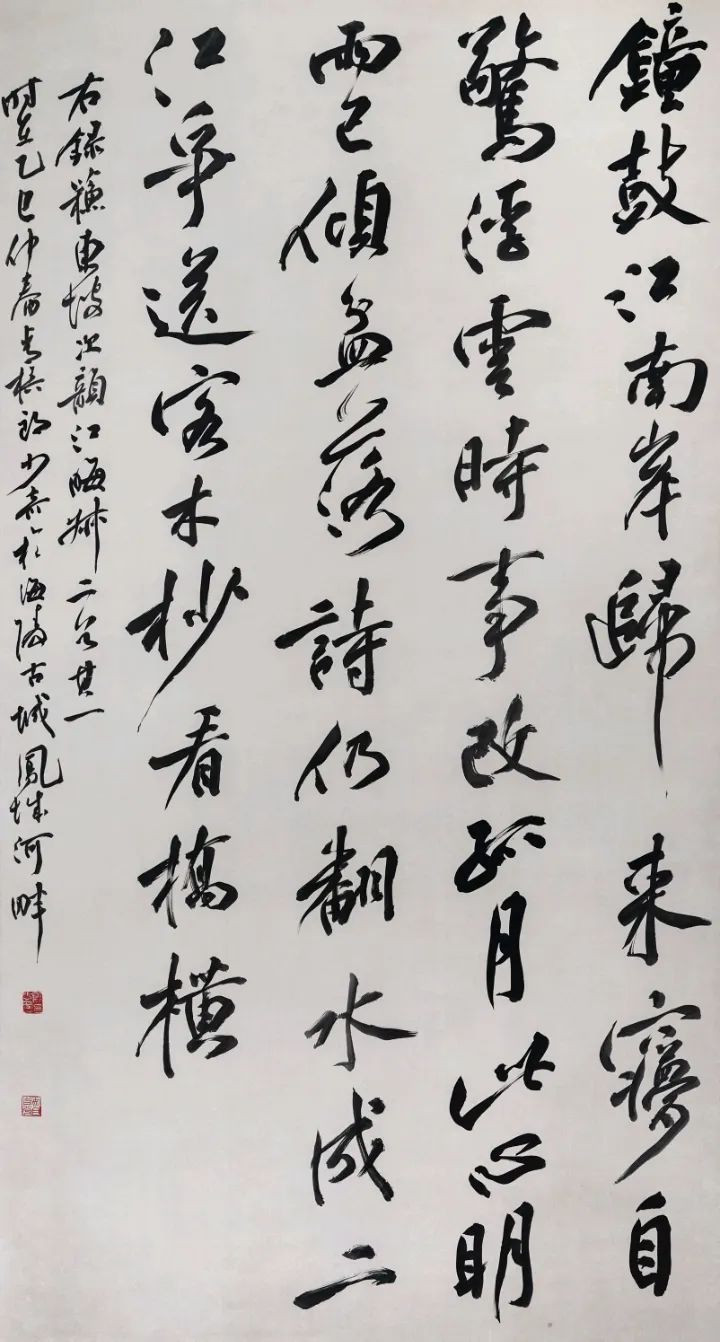 鐘鼓江南岸歸來㝱自
驚浮雲時事改孤月此心明
雨已傾盆落詩仍翻水成二
江爭送客木杪看橋橫
右錄蘇東坡次韻江晦叔二首其一
時在乙巳仲春少嘉於海陵古城鳳城河畔